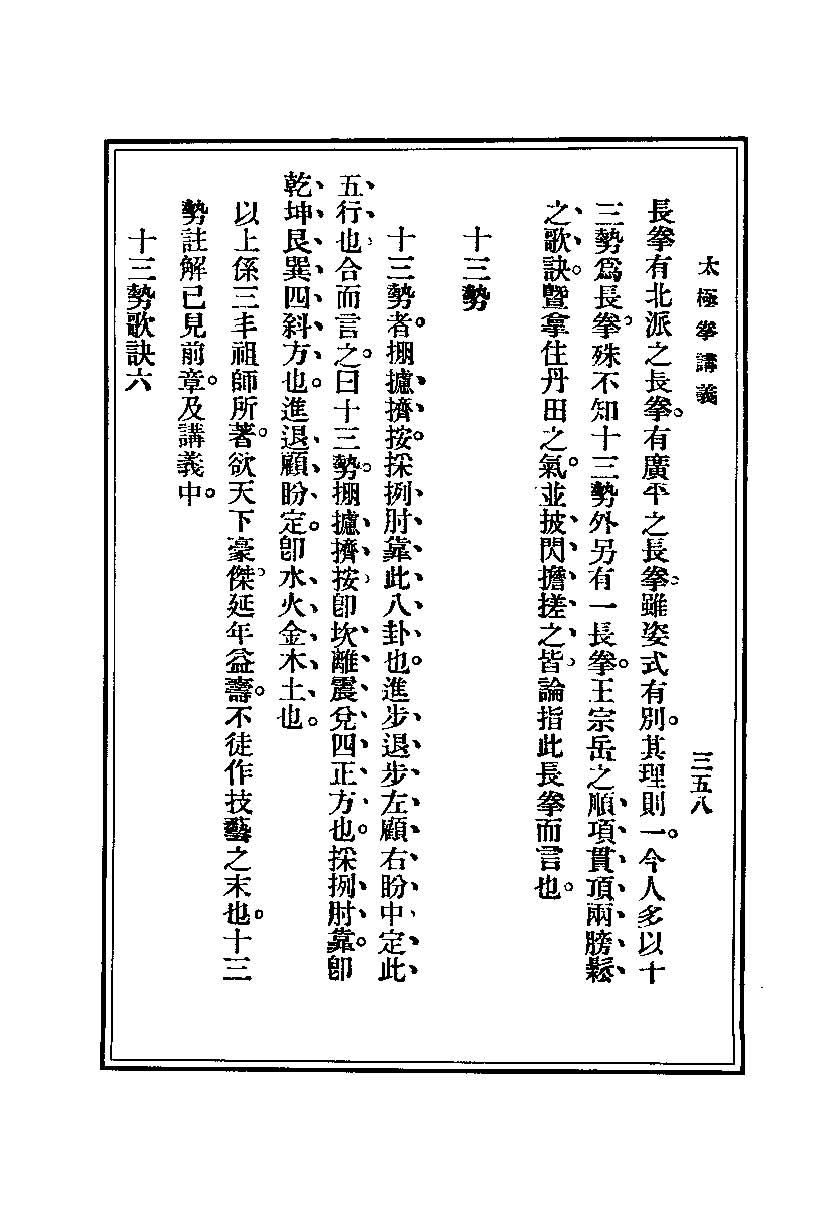 太極拳講義
三五八
長拳有北派之長拳。有廣平之長拳。雖姿式有別。其理則一。今人多以十
三勢爲長拳。殊不知十三勢外另有一長拳。王宗岳之順項貫頂兩膀鬆
之歌訣。曁拿住丹田之氣。並披閃擔搓之皆。論指此長拳而言也。
十三勢
十三勢者。掤攄擠按。採挒肘靠此八卦也。進步退步左顧右盼中定此
五行也。合而言之。曰十三勢。掤攄擠按。卽坎離震兌四正方也。採挒肘靠。卽
乾坤艮巽四斜方也。進退顧盼定。卽水火金木土也。
以上係三丰祖師所著。欲天下豪傑。延年益壽。不徒作技藝之末也。十三
勢註解已見前章。及講義中。
十三勢歌訣六